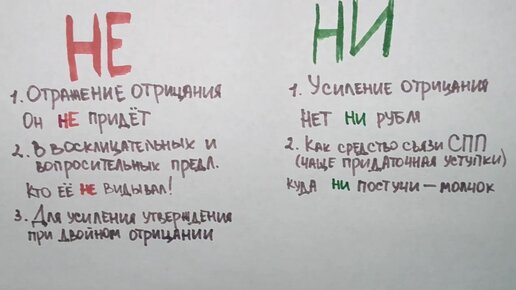 НЕ
1. Отражение отрицания
Он НЕ придёт
2. В восклицательных и
вопросительных предл.
Кто её НЕ видывал!
3. Для усиления утверждения
при двойном отрицании
НИ
1. Усиление отрицания
Нет НИ рубля
2. Как средство связи СПП
(чаще придаточная уступки)
Куда НИ постучи – молчок